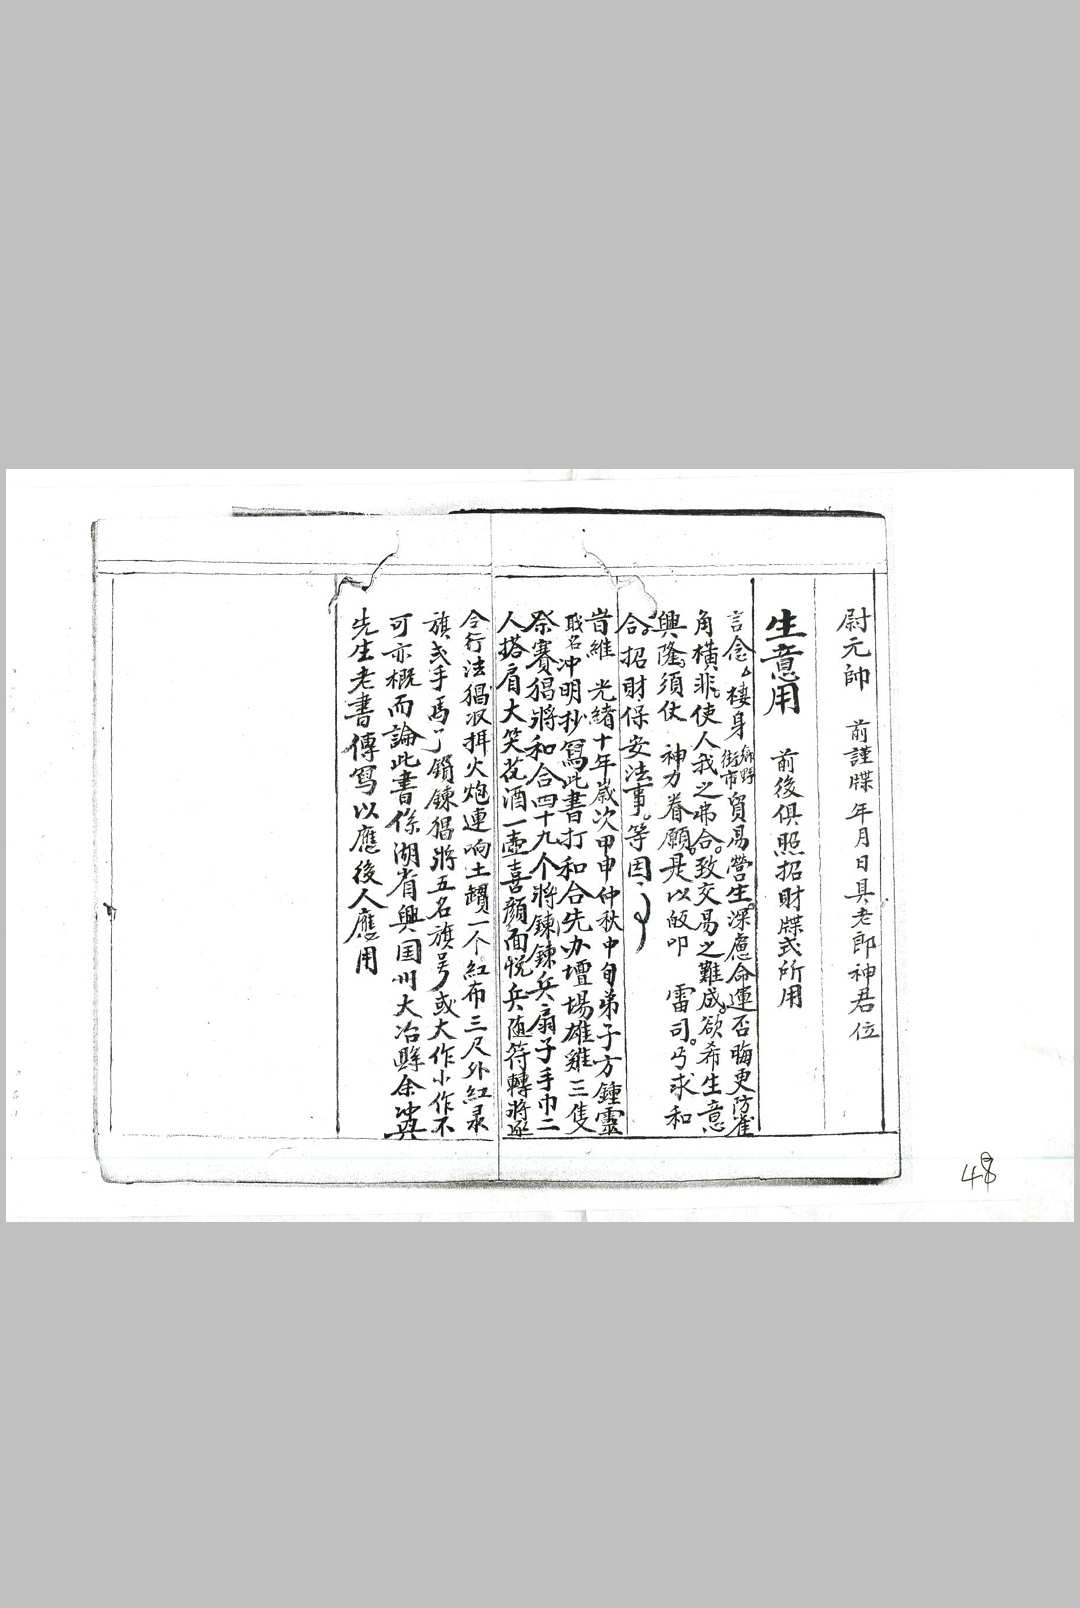 尉元帥　前謹牒　年月日具老郎神君位
生意用　前後俱照招財牒式所用
言念厶棲身鄉野街市貿易營生深慮命運否晦更防雀
角橫非使人我之弗合致交易之難成欲希生意
興隆須仗　神力眷願是以皈叩　雷司丐求和
合招財保安法事等因
昔維　光緒十年歲次甲申仲秋中旬弟子方鍾靈
戢名冲明抄寫此書打和合先办壇場雄雞三隻
祭賽猖將和合四十九个將鍊鍊兵扇子手巾二
人搭肩大笑花酒一壺喜顏面悅兵隨符轉將逐
令行法猖收揖火炮連响土躓一个紅布三尺外紅录
旗弍手馬丁鎖鍊猖將五名旗号或大作小作不
可亦概而論此書係湖省興国州大冶縣余
先生老書傳寫以應後人應用
48